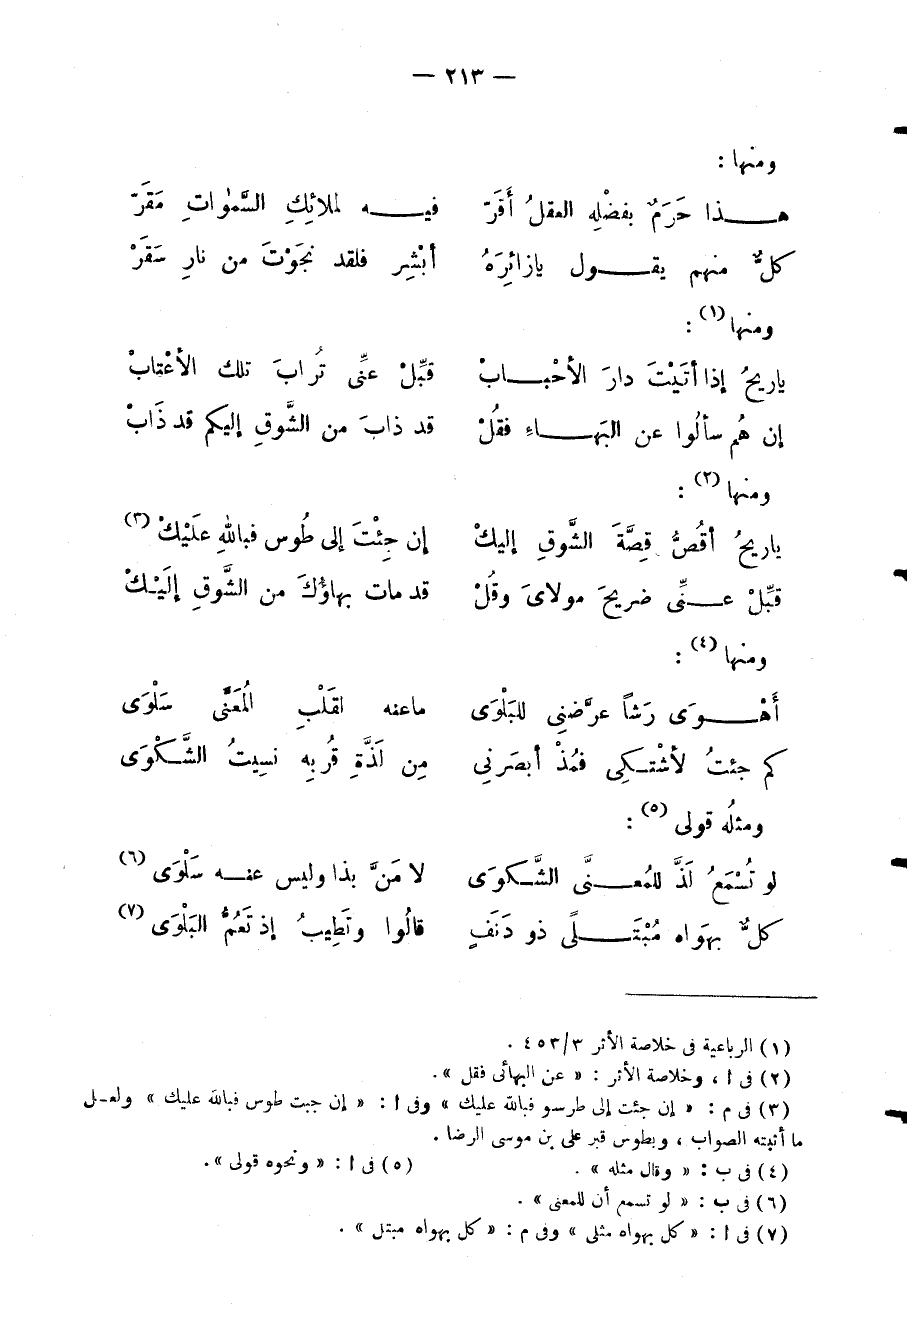 — ٢١٣ —
ومنها :
هـــذا حَرَمٌ بفضْلِه العقلُ أَقَرّ فيـــه لملائِكِ السَّمٰوات مَقَرّ
كلٌّ منهم يقـــول يازائِرَهُ أَبْشِر فلقد نجَوْتَ من نارِ سَقَرْ
ومنها (١) :
ياريحُ إذا أتَيْتَ دارَ الأحْبـــابْ قبِّلْ عنِّى تُرابَ تلك الأعْتابْ
إن هُم سألُوا عن البَهـــاءِ فقُلْ قد ذابَ من الشَّوقِ إليكم قد ذَابْ
ومنها (٢) :
ياريحُ أقُصُّ قِصَّةَ الشَّوقِ إليكْ إن جِئْتَ إلى طُوس فباللهِ علَيْكْ (٣)
قبِّلْ عـــنِّى ضريحَ مولاىَ وقُلْ قد مات بهاؤُكَ من الشَّوقِ إلَيْكْ
ومنها (٤) :
أَهْـــوَى رَشاً عرَّضنِى للبَلْوَى ماعنه لقَلْبِ المُعَنَّى سَلْوَى
كم جئتُ لأشْتـكِى فمُذْ أبصَرنِى مِن لَذَّةِ قُربِه نسِيتُ الشَّـكْوَى
ومثلُه قولى (٥) :
لو تُسْمَعُ لَذَّ للمُعـــنَّى الشَّـكوَى لا مَنَّ بذا وليس عنـــه سَلْوَى (٦)
كلٌّ بهَواه مُبْتَـــلًى ذو دَنَفٍ قالُوا وتَطِيبُ إذ تَعُمُّ البَلْوَى (٧)
(١) الرباعية فى خلاصة الأثر ٤٥٣/٣ .
(٢) فى ا ، وخلاصة الأثر : « عن البهائى فقل ».
(٣) فى م : « إن جئت إلى طرسو فبالله عليك » وفى ا : « إن جبت طوس فبالله عليك » ولعـل
ما أثبته الصواب ، وبطوس قبر على بن موسى الرضا .
(٤) فى ب : « وقال مثله » . (٥) فى ا : « ونحوه قولى ».
(٦) فى ب : « لو تسمع أن للمعنى » .
(٧) فى ا : « كل بهواه مثلى » وفى م : « كل بهواه مبتل » .